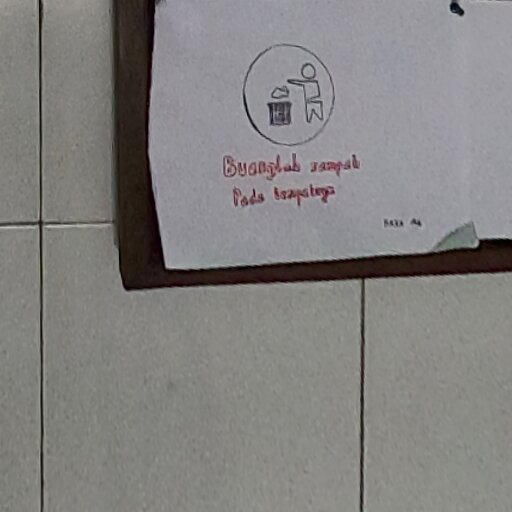 Buanglah sampah
Pada tempatnya